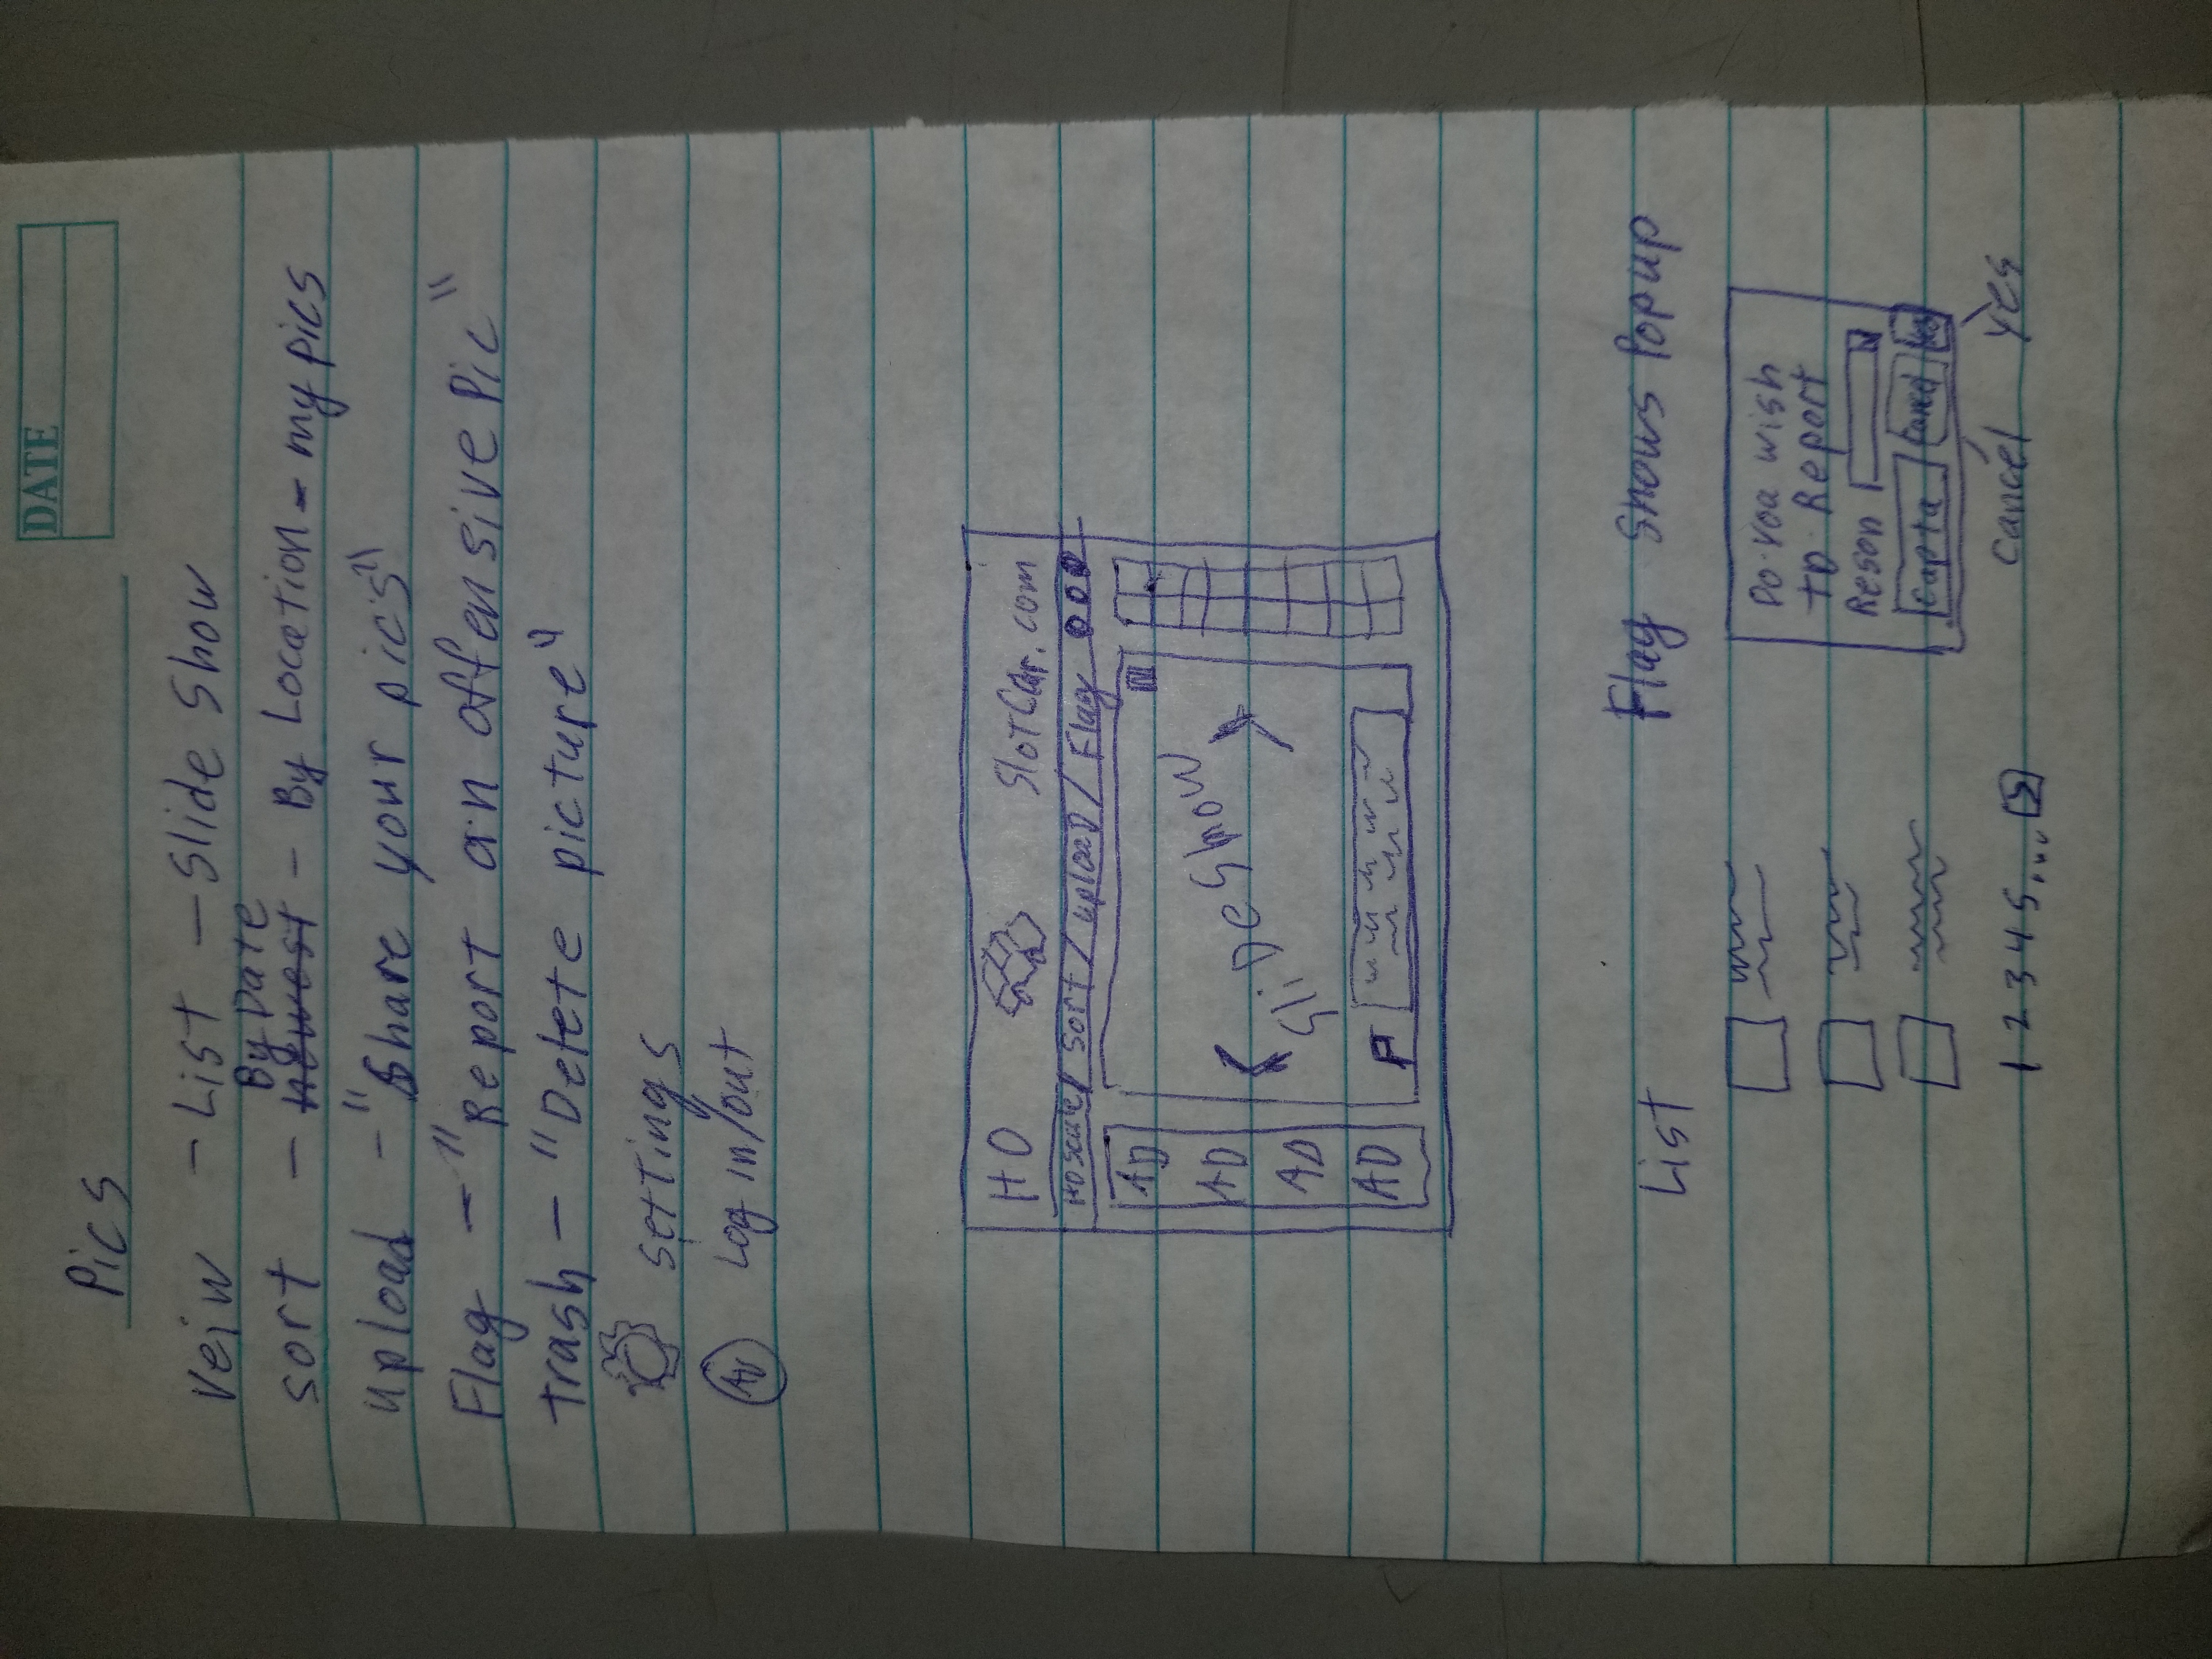 DATE
Pics
Veiw - List - Slide Show
By Date
sort - newest - By Location - my pics
upload - "Share your pics"
Flag - "Report an offensive Pic"
trash - "Delete picture"
settings
Log in/out
HO SlotCar.com
HO Scale / Sort / upload / Flag
AD
AD
AD
AD
SliDeShow
F
List
Flag Shows Popup
Do you wish
to Report
Reson
Capta Cancel Yes
Cancel Yes
1 2 3 4 5...